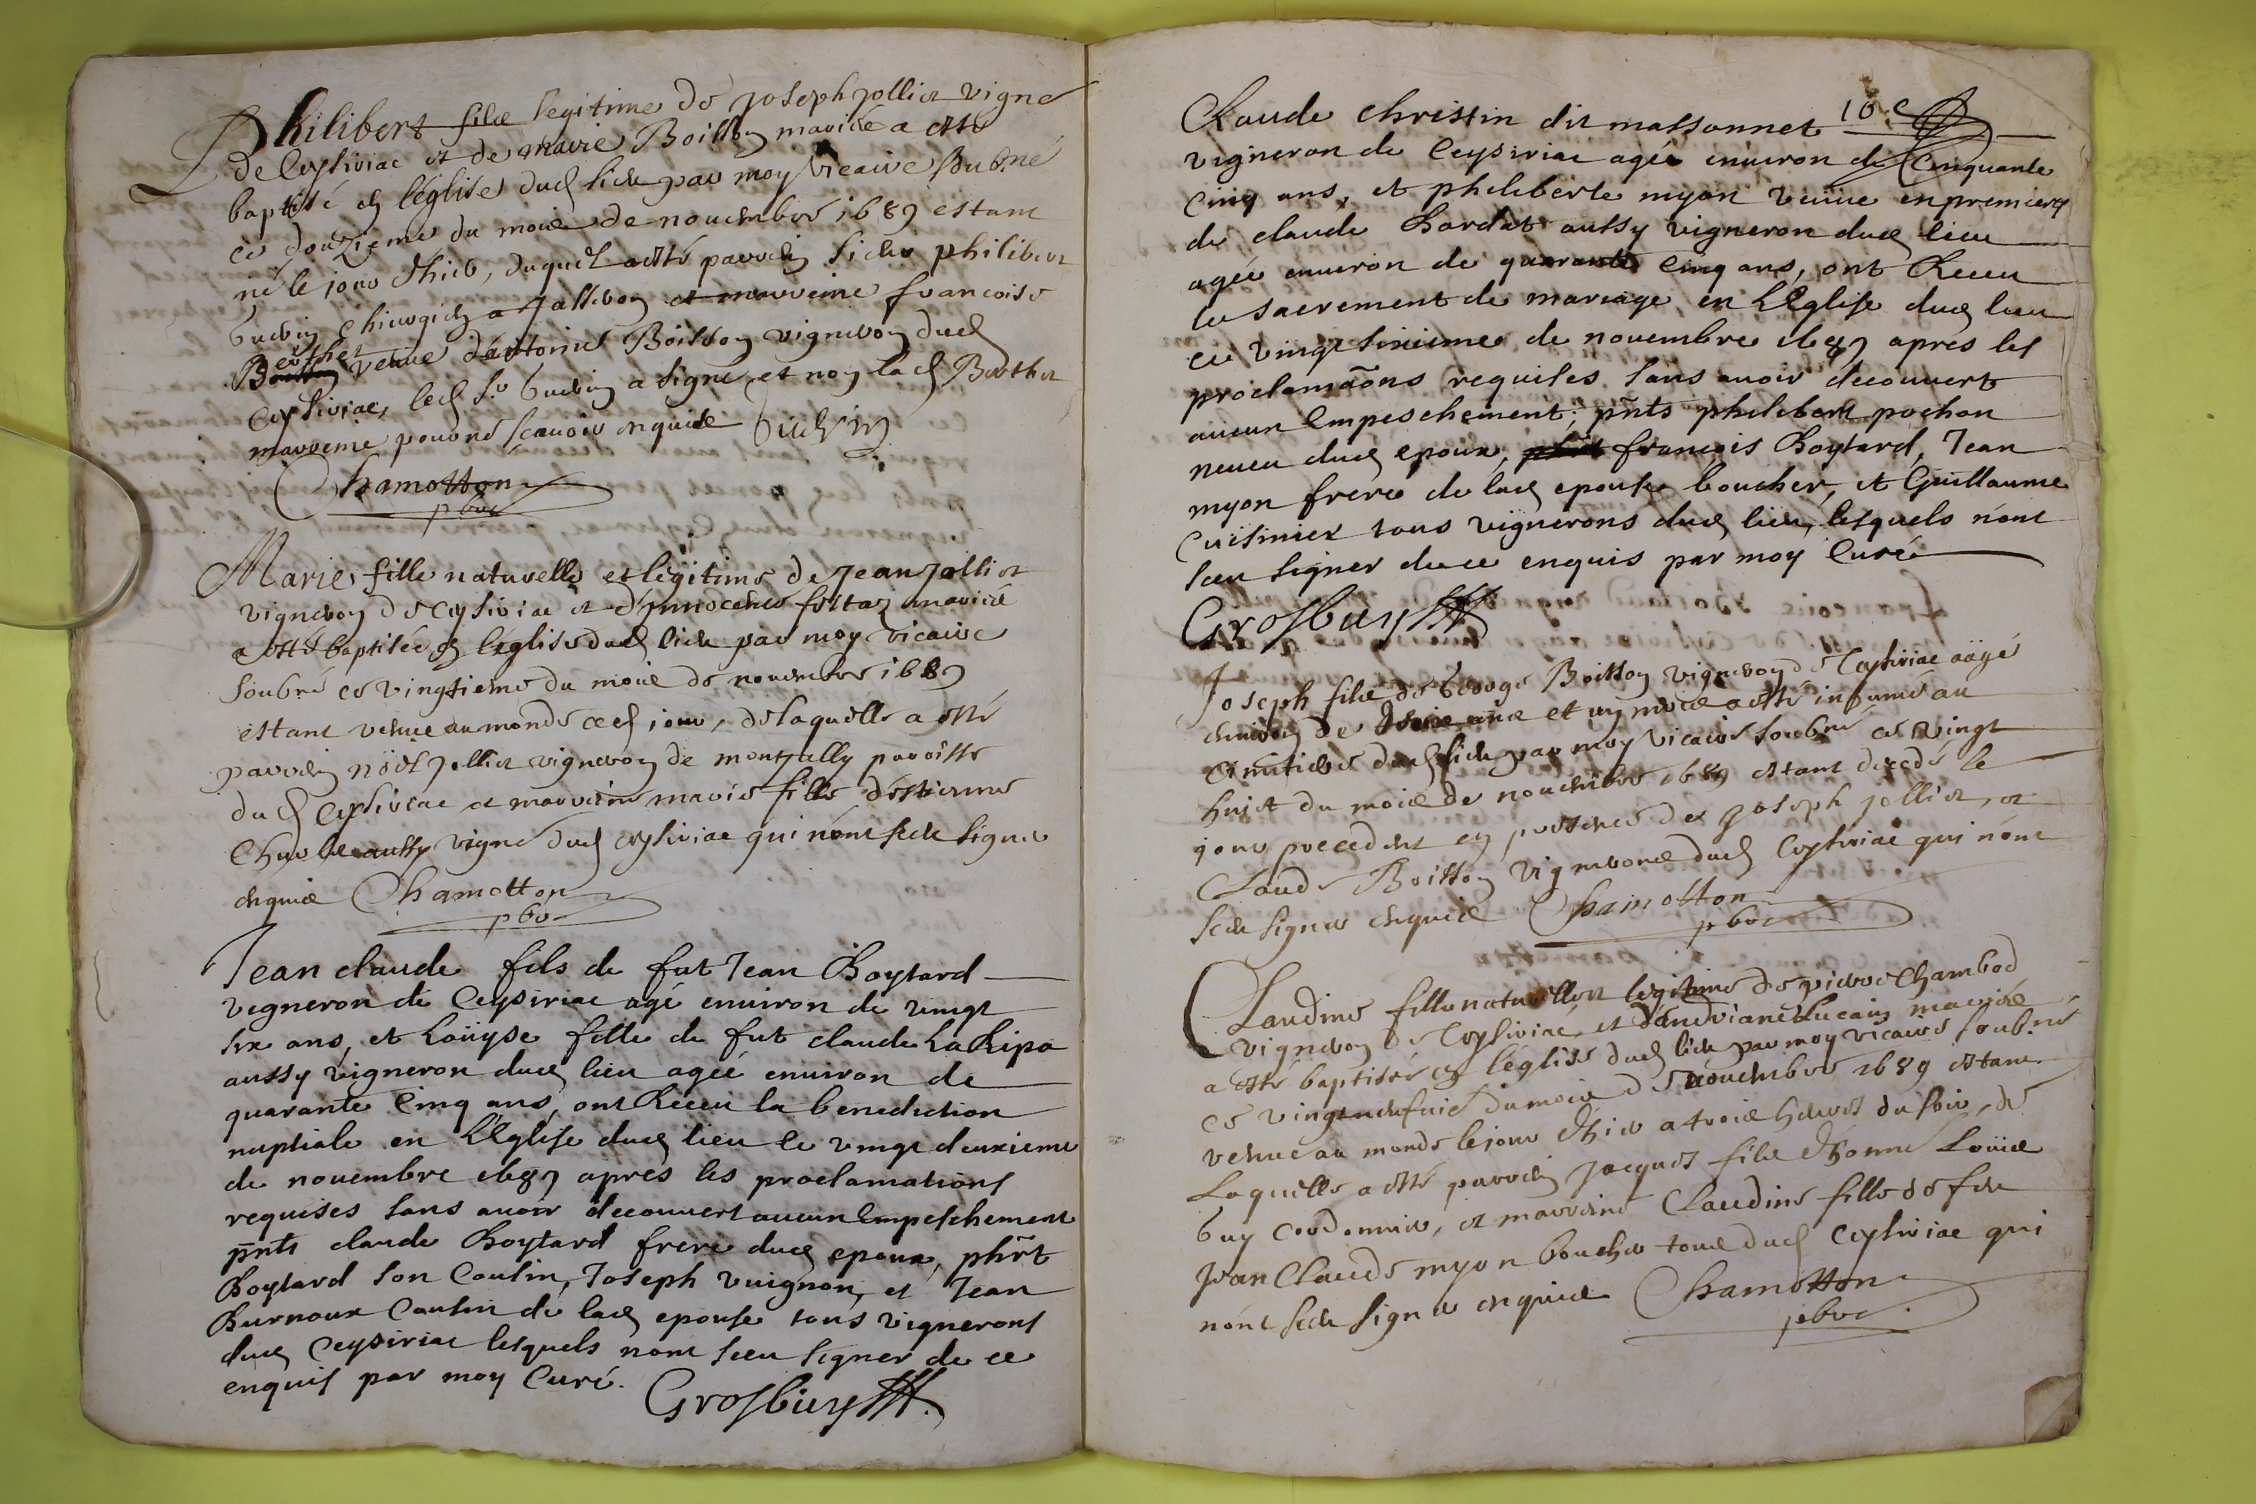 Philibert filz legitime de Joseph Jolliet vigne
de Ceysiriac et de Marie Boisson mariez a esté
baptisé en l'églises dud lieu par moy vicaire soubné
ce douzieme du mois de novembre 1689 estant
né le jour d'hier, duquel a esté parrein sieur philibert
chirurgien a Jasseron et marreine francoise
Berthet vefve d'Antoine Boisson vigneron dud
Ceysiriac, led Sr a signe et non lad Berthet
marreine pour ne scavoir enquise
Chamotton
pbre
Marie fille naturelle et legitime de Jean Jolliet
vigneron de Ceysiriac et d'Innocence mariez
a esté baptisée en l'églises dud lieu par moy vicaire
soubné ce vingtieme du mois de novembre 1689
estant venue au monde ced jour, de laquelle a esté
parrein noël Jolliet vigneron de montJully paroisse
dud Ceysiriac et marreine marie fille d'Estienne
aussy vigne dud ceysiriac qui n'ont sceu signer
enquis Chamotton
pbre
Jean claude fils de fut Jean Boytard
vigneron de Ceysiriac agé environ de vingt
six ans, et Louÿse fille de fut claude La Ripa
aussy vigneron dud lieu agée environ de
quarante cinq ans, ont Receu la benediction
nuptiale en L'Eglise dud lieu le vingt deuxieme
de novembre 1689 apres les proclamations
requises sans avoir decouvert aucun Empeschement
pnts claude Boytard frere dud epoux, phrt
Boytard son Cousin, Joseph vuignon, et Jean
Burnoux Cousin de lad epouse tous vignerons
dud Ceysiriac lesquels n'ont sceu signer de ce
enquis par moy Curé. Grosbuy
10e
Claude christin dit massonnet
vigneron de Ceysiriac agée environ de Cinquante
cinq ans, et philiberte myon veüve en premieres
de claude Bardet aussy vigneron dud lieu
agée environ de quarante Cinq ans, ont Receu
le sacrement de mariage en L'Eglise dud lieu
ce vingt sixieme de novembre 1689 apres les
proclamaõns requises sans avoir decouvert
aucun Empeschement, pnts philibert pochon
neveu dud epoux, françois Boytard, Jean
myon frere de lad epouse boucher, et Guillaume
Cuisinier tous vignerons dud lieu, lesquels n'ont
sceu signer de ce enquis par moy Curé
Grosbuy
Joseph filz de George Boisson vigneron de Ceysiriac aagé
environ de ans et un mois a esté inhumé au
cimetiere dud lieu par moy vicaire soubné ce vingt
huict du mois de novembre 1689 estant decedé le
jour precedent en presence de Joseph jolliet, et
Claude Boisson vignerons dud Ceysiriac qui n'ont
sceu signer enquis Chamotton
pbre
Claudine fille naturelle et legitime de pierre Chambod
vigneron de Ceysiriac et d'andriane Lucain mariez
a esté baptisée en l'églises dud lieu par moy vicaire soubné
ce vingtneufvie du mois de novembre 1689 estant
venue au monde le jour d'hier a trois heures du soir, de
Laquelle a esté parrein Jacques filz d'honné Louis
buy cordonnier, et marreine Claudine fille de feu
Jean Claude myon boucher tous dud Ceysiriac qui
n'ont sceu signer enquis Chamotton
pbre